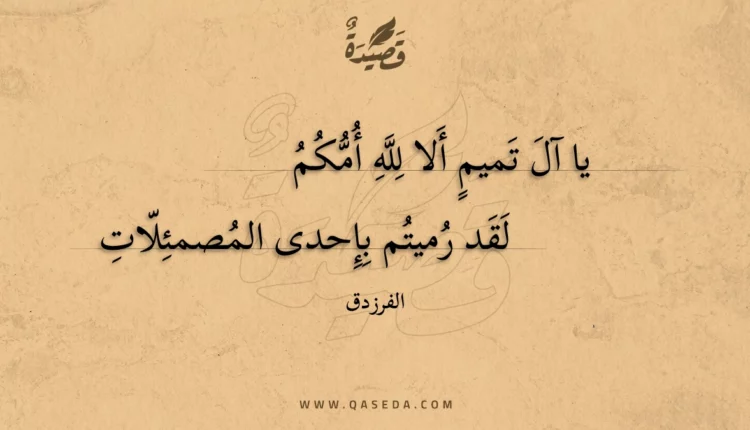 قَصِيدَةٌ
يا آلَ تَميمٍ أَلا لِلَّهِ أُمُّكُمُ
لَقَد رُميتُم بِإِحدى المُصمئِلّاتِ
الفرزدق
WWW.QASEDA.COM